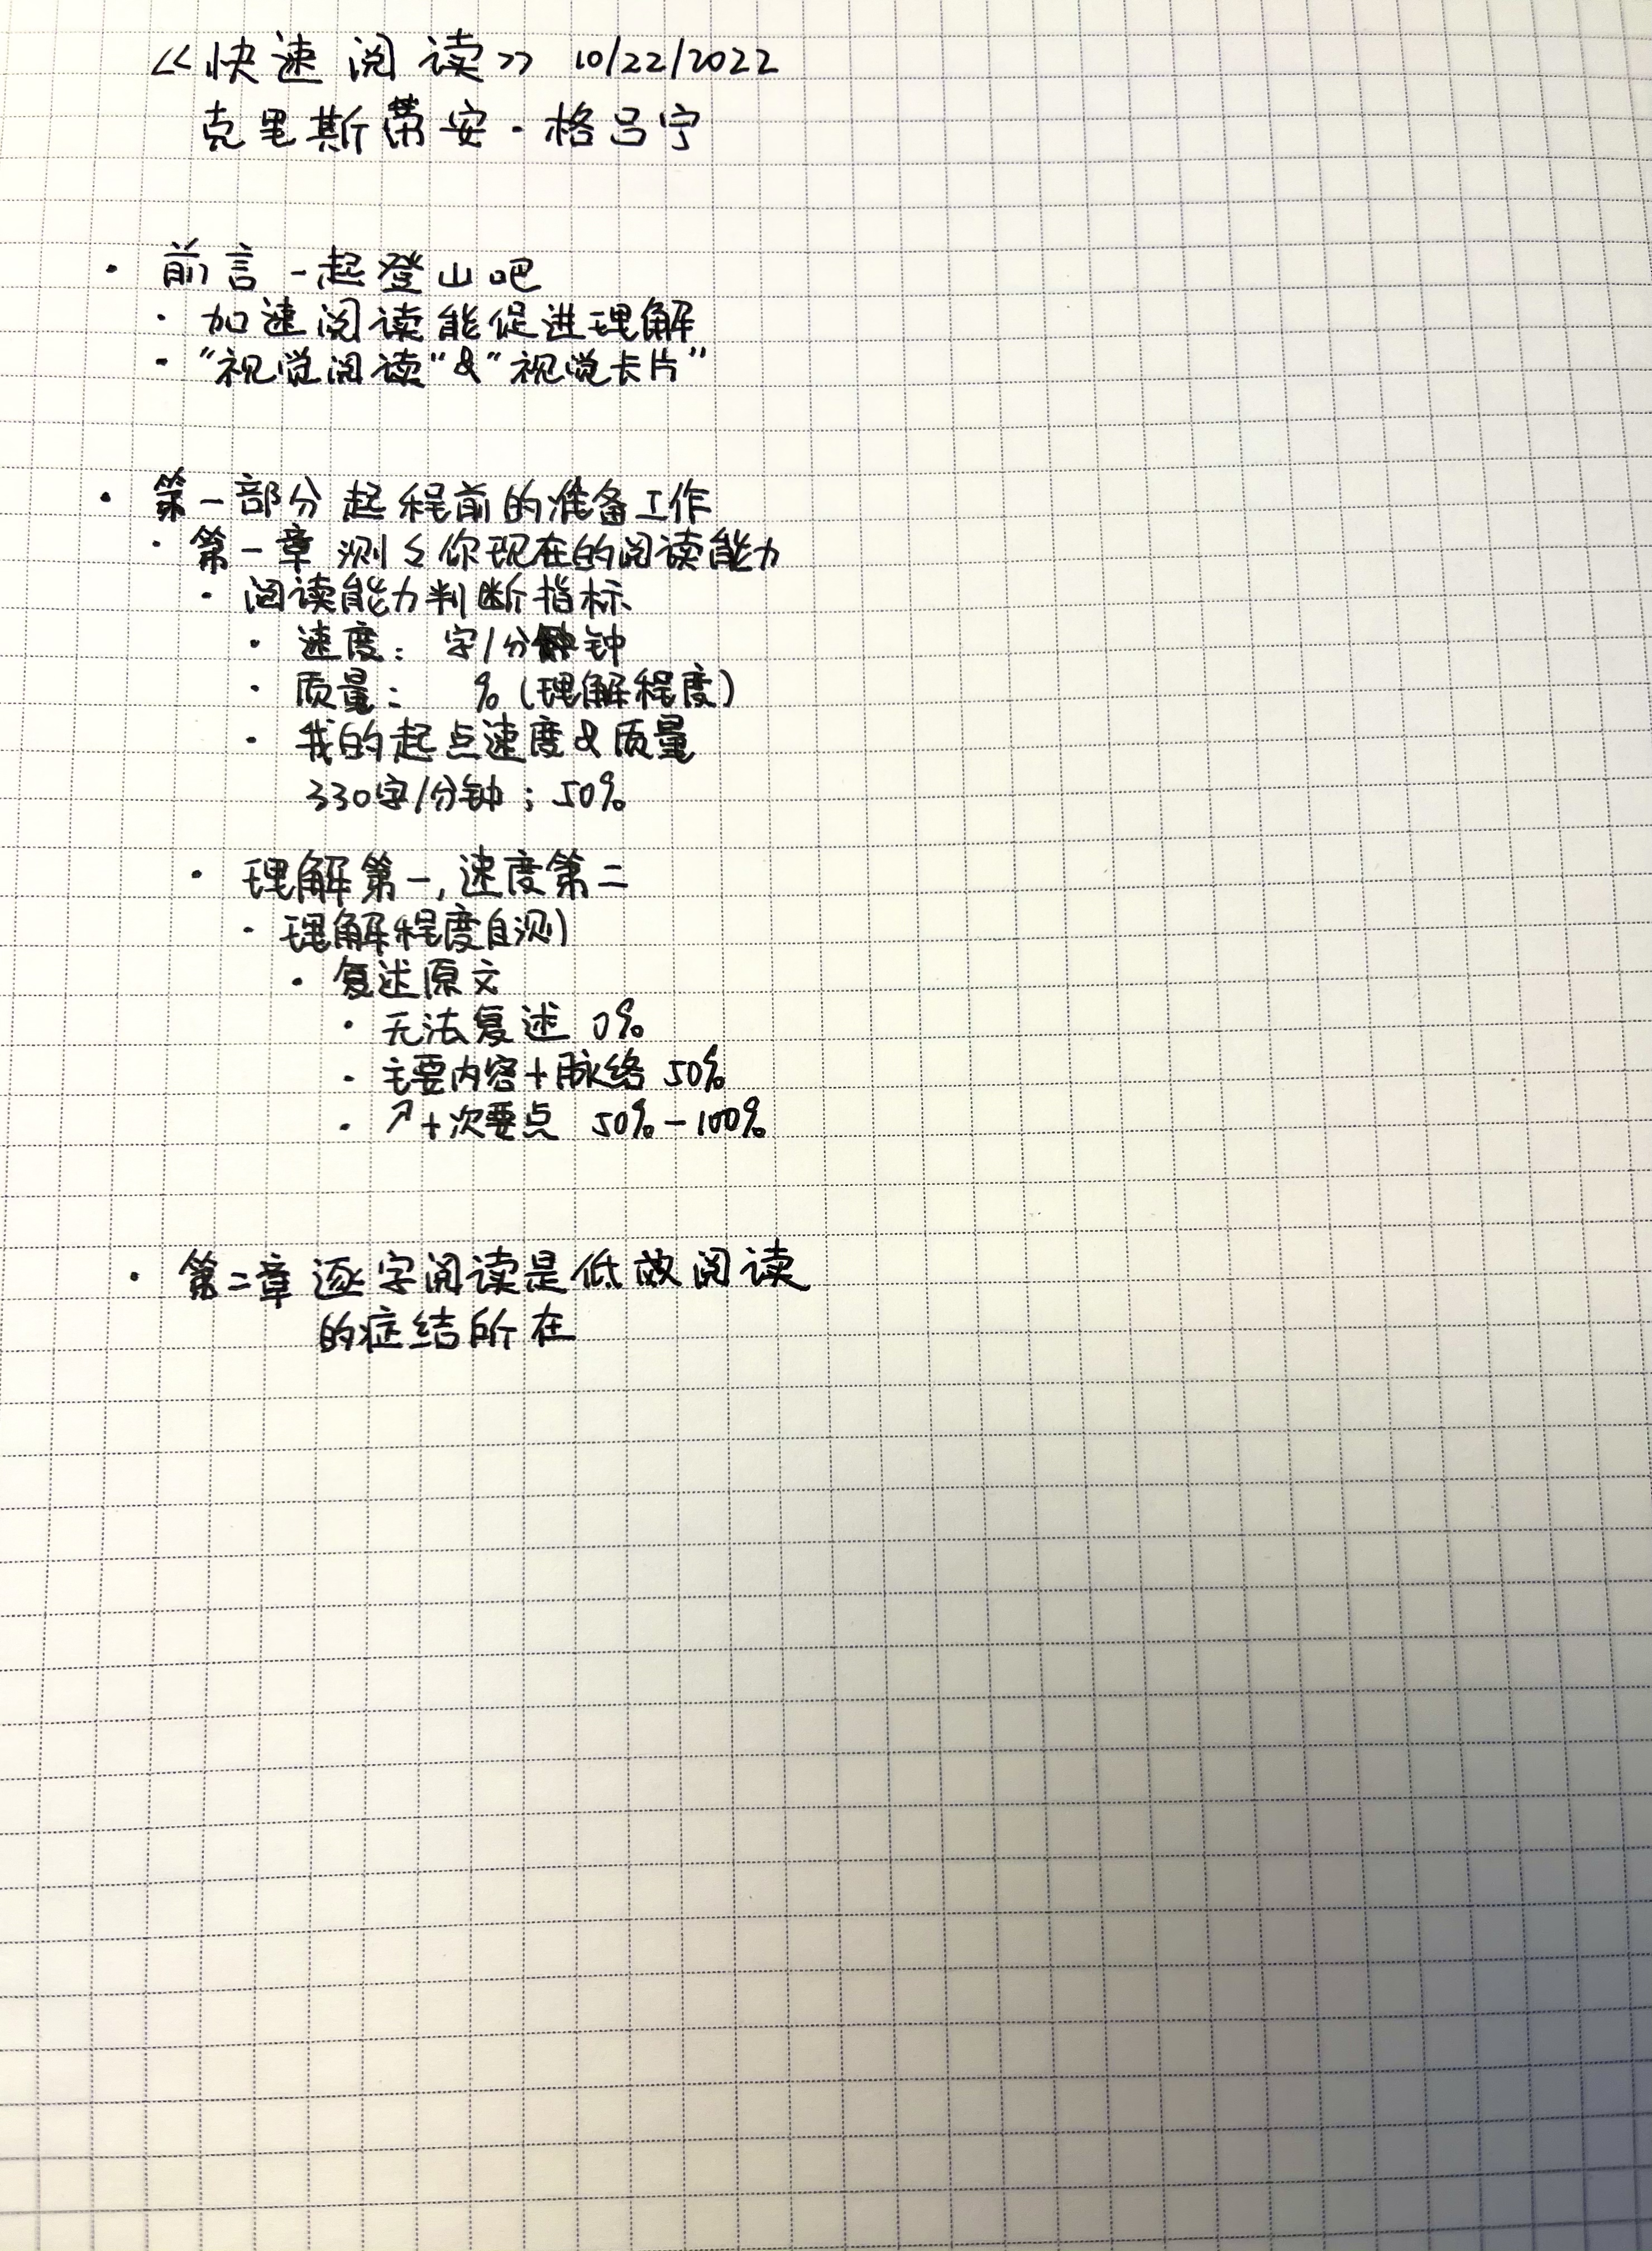 《快速阅读》 10/22/2022
克里斯蒂安·格吕宁
· 前言 一起登山吧
· 加速阅读能促进理解
· "视觉阅读"&"视觉卡片"
· 第一部分 起程前的准备工作
· 第一章 测々你现在的阅读能力
· 阅读能力判断指标
· 速度: 字/分钟
· 质量: %(理解程度)
· 我的起点速度&质量
330字/分钟; 50%
· 理解第一,速度第二
· 理解程度自测
· 复述原文
· 无法复述 0%
· 主要内容+脉络 50%
· ↗+次要点 50%-100%
· 第二章 逐字阅读是低效阅读
的症结所在